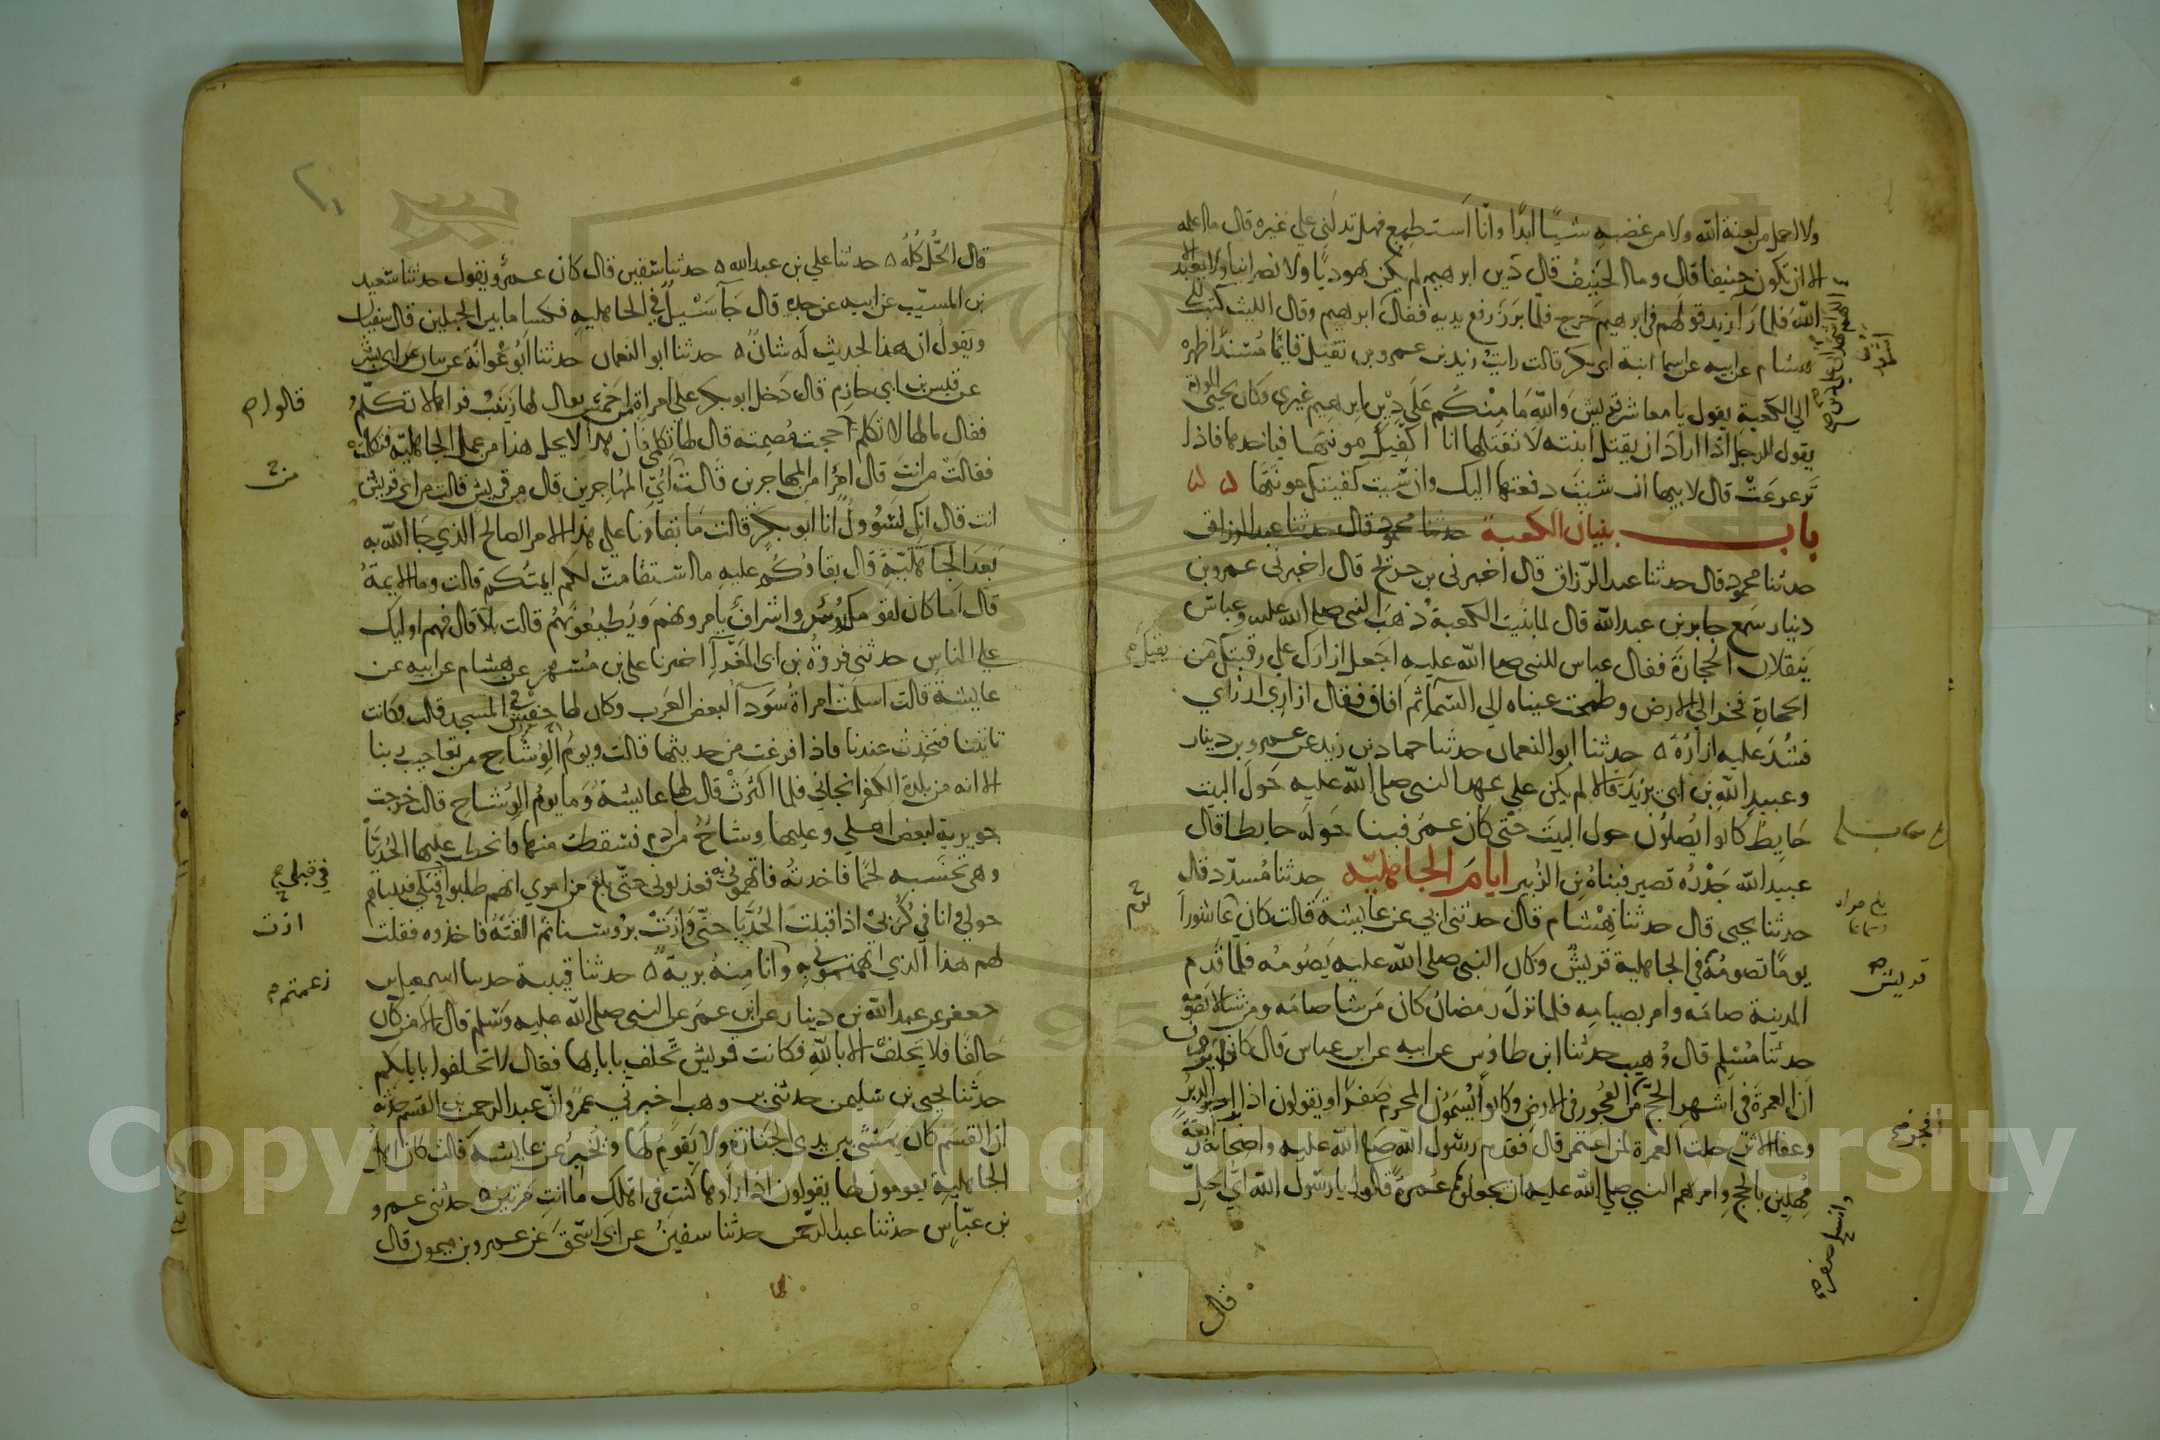 ولا احمل من لعنة الله ولا من غضبه شيئا ابدا وانا استطيع فهل تدلني علي غيره قال ما اعلمه
الا ان تكون حنيفا قال وما الحنيف قال دين ابرهيم لم يكن يهوديا ولا نصرانيا ولا يعبد الا
الله فلما راى زيد قولهم في ابرهيم خرج فلما برز رفع يديه فقال وقال الليث كتب الي
هشام عن ابيه عن اسما ابنة ابي بكر قالت رايت زيد بن عمرو بن نفيل قايما مسندا ظهره
الي الكعبة يقول يا معاشر قريش والله ما منكم علي دين ابرهيم غيري وكان يحيي الموودة
يقول للرجل اذا اراد ان يقتل ابنته لا تقتلها انا اكفيك مونتها فياخذها فاذا
ترعرعت قال لابيها ان شيت دفعتها اليك وان شيت كفيتك مونتها ه ه
باب بنيان الكعبة حدثنا محمود قال حدثنا عبد الرزاق
حدثنا محمود قال حدثنا عبد الرزاق قال اخبرني بن جريج قال اخبرني عمرو بن
دينار سمع جابر بن عبد الله قال لما بنيت الكعبة ذهب النبي صلي الله عليه وعباس
ينقلان الحجارة فقال عباس للنبي صلي الله عليه اجعل ازارك علي رقبتك من
الحجارة فخر الي الارض وطمحت عيناه الي السما ثم افاق فقال ازاري ازاري
فشد عليه ازاره ه حدثنا ابو النعمان حدثنا حماد بن زيد عن عمرو بن دينار
وعبيد الله بن ابي يزيد قالا لم يكن علي عهد النبي صلي الله عليه حول البيت
حايط كانوا يصلون حول البيت حتي كان عمر فبنا حوله حايطا قال
عبيد الله جدره قصير فبناه بن الزبير ايام الجاهلية حدثنا مسدد قال
حدثنا يحيي قال حدثنا هشام قال حدثني ابي عن عايشة قالت كان عاشورا
يوما تصومه في الجاهلية قريش وكان النبي صلي الله عليه يصومه فلما قدم
المدينة صامه وامر بصيامه فلما نزل رمضان كان من شا صامه ومن شا لا يصومه
حدثنا مسلم قال وهيب حدثنا ابن طاوس عن ابيه عن ابن عباس قال كانوا يرون
ان العمرة في اشهر الحج من الفجور في الارض وكانوا يسمون المحرم صفرا ويقولون اذا برا الدبر
وعفا الاثر حلت العمرة لمن اعتمر قال فقدم رسول الله صلي الله عليه واصحابه رابعة
مهلين بالحج وامرهم النبي صلي الله عليه ان يجعلوها عمرة قالوا يا رسول الله اي الحل
قال
يقيك
قريش
قال الحل كله ه حدثنا علي بن عبد الله ه حدثنا سفين قال كان عمرو يقول حدثنا سعيد
بن المسيب عن ابيه عن جده قال جا سيل في الجاهلية فكسا ما بين الجبلين قال سفيان
ويقول ان هذا الحديث له شان ه حدثنا ابو النعمان حدثنا ابو عوانة عن بيان عن ابي بشر
عن قيس بن ابي حازم قال دخل ابو بكر علي امراة من احمس يقال لها زينب فراها لا تكلم
فقال مالها لا تكلم حجت مصمتة قال لها تكلمي فان هذا لا يحل هذا من عمل الجاهلية فتكلمت
فقالت من انت قال امرا من المهاجرين قالت اي المهاجرين قال من قريش قالت من اي قريش
انت قال انك لسوول انا ابو بكر قالت ما بقاونا علي هذا الامر الصالح الذي جا الله به
بعد الجاهلية قال بقاوكم عليه ما استقامت لكم ايمتكم قالت وما الايمة
قال اما كان لقومك روس واشراف يامرونهم ويطيعونهم قالت بلا قال فهم اوليك
علي الناس حدثني فروة بن ابي المغرا اخبرنا علي بن مسهر عن هشام عن ابيه عن
عايشة قالت اسلمت امراة سودا لبعض العرب وكان لها حفش في المسجد قالت فكانت
تاتينا فتحدث عندنا فاذا فرغت من حديثها قالت ويوم الوشاح من تعاجيب ربنا
الا انه من بلدة الكفر انجاني فلما اكثرت قالت لها عايشة وما يوم الوشاح قالت خرجت
جويرية لبعض اهلي وعليها وشاح من ادم فسقط منها فانحطت عليها الحديا
وهي تحسبه لحما فاخذته فاتهموني به فعذبوني حتي بلغ من امري انهم طلبوا في قبلي فبيناهم
حولي وانا في كربي اذا قبلت الحديا حتي وازت بروسنا ثم القته فاخذوه فقلت
لهم هذا الذي اتهمتموني به وانا منه برية ه حدثنا قتيبة حدثنا اسمعيل بن
جعفر عن عبد الله بن دينار عن ابن عمر عن النبي صلي الله عليه وسلم قال الا من كان
حالفا فلا يحلف الا بالله فكانت قريش تحلف بابايها فقال لا تحلفوا بابايكم
حدثنا يحيي بن سليمن حدثني بن وهب اخبرني عمرو ان عبد الرحمن بن القسم حدثه
ان القسم كان يمشي بين يدي الجنازة ولا يقوم لها ويخبر عن عايشة قالت كان اهل
الجاهلية يقومون لها يقولون اذا راوها كنت في اهلك ما انت مرتين ه حدثني عمرو
بن عباس حدثنا عبد الرحمن حدثنا سفين عن ابي اسحق عن عمرو بن ميمون قال
قالوا
من
في قبلي
ازت
زعمتم
Copyright © King Saud University
1957